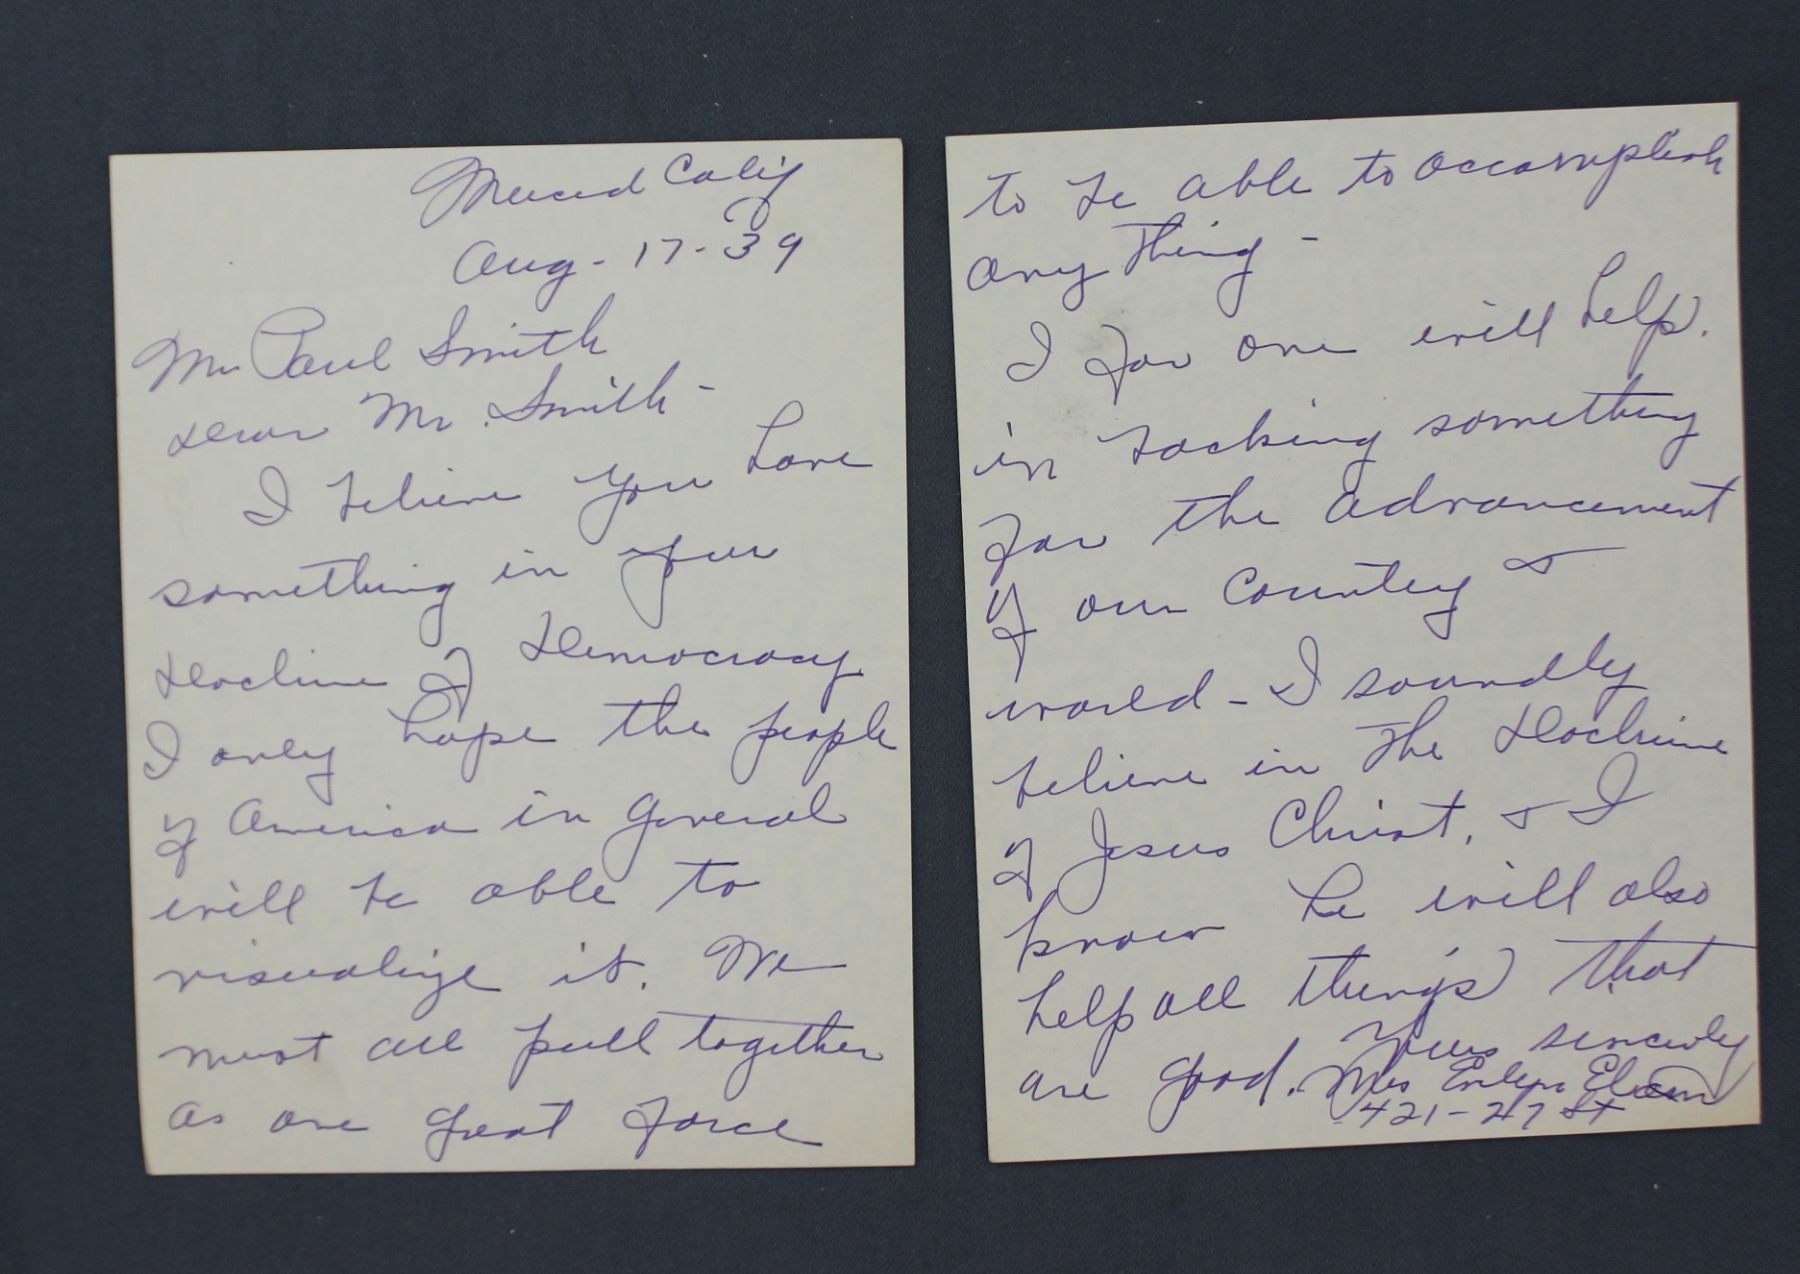 Merced Calif
Aug - 17 - 39
Mr Paul Smith
Dear Mr. Smith -
I believe you have
something in your
Doctrine of Democracy.
I only hope the people
of America in general
will be able to
visualize it. We
must all pull together
as one great force
to be able to accomplish
any thing -
I for one will help.
in backing something
for the advancement
of our Country &
world - I soundly
believe in the Doctrine
of Jesus Christ, & I
know he will also
help all things that
are good.
Yours sincerely
Mrs Evelyn Elam
421 - 27 St